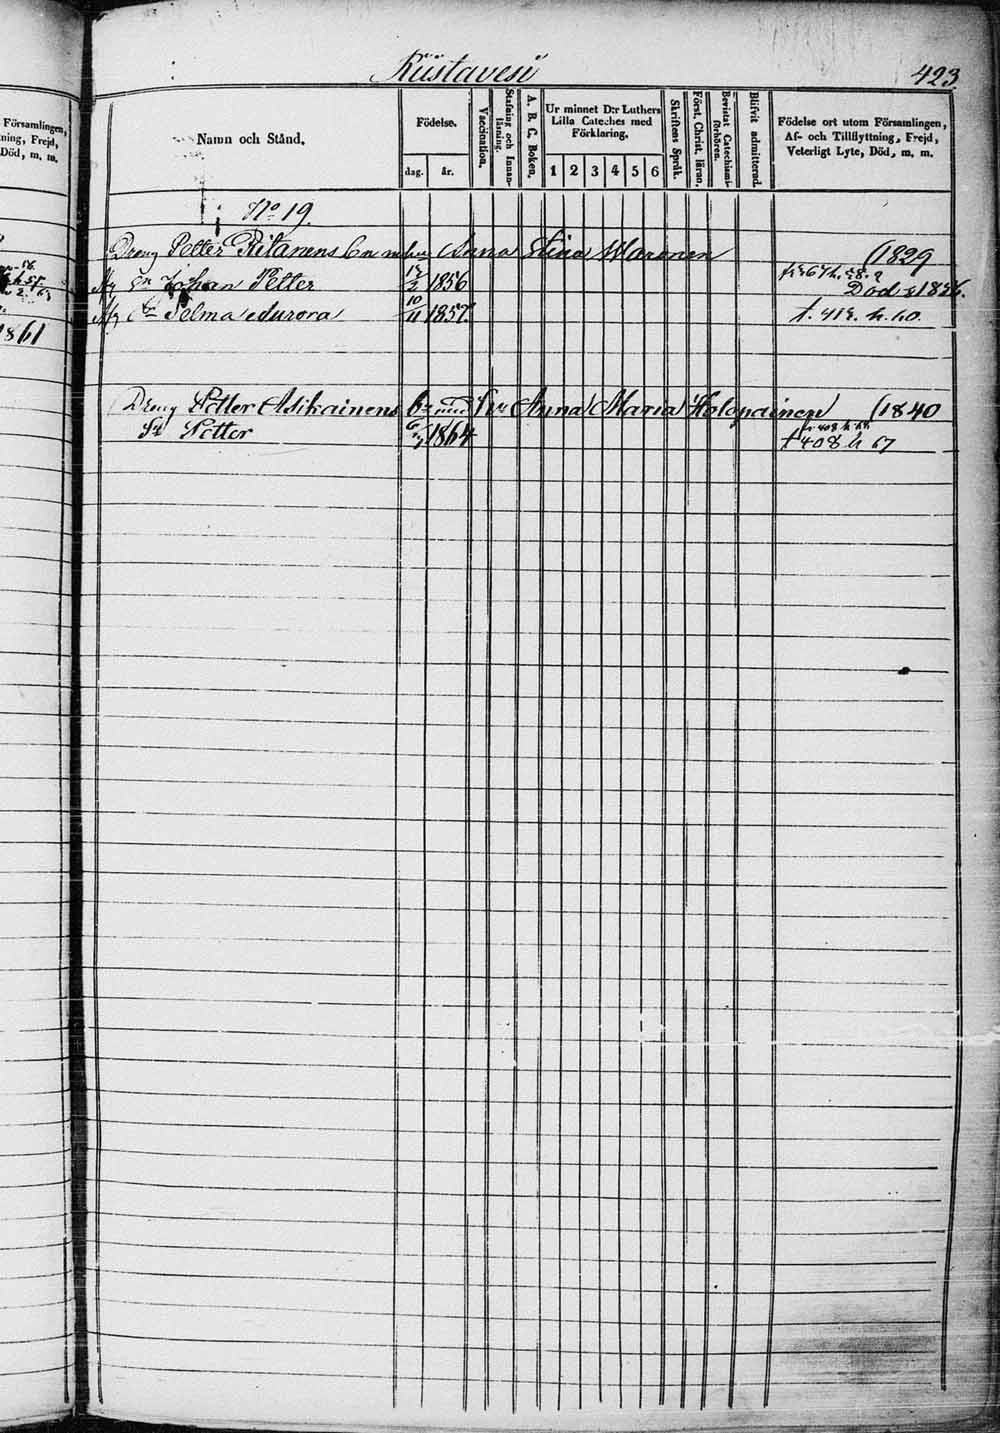 Kiistavesi
423
Församlingen,
ning, Frejd,
Död, m. m.
1861
Namn och Stånd.
Födelse.
dag.
år.
Vaccination.
Stafning och Innan-
läsning.
A. B. C. Boken.
Ur minnet D:r Luthers
Lilla Cateches med
Förklaring.
1 2 3 4 5 6
Skriftens Språk.
Först. Christ. läran.
Bevistat Catechismi-
förhören.
Blifvit admitterad.
Födelse ort utom Församlingen,
Af- och Tillflyttning, Frejd,
Veterligt Lyte, Död, m. m.
No 19.
Dreng Petter Ritanens Anna Stina Maronen (1829
Johan Petter 1856 Död 1856.
Selma Aurora 10/11 1857. f. 419. h. 60.
Dreng Petter Asikainens Anna Maria Holopainen (1840
Petter 1864 f. 408 h 67